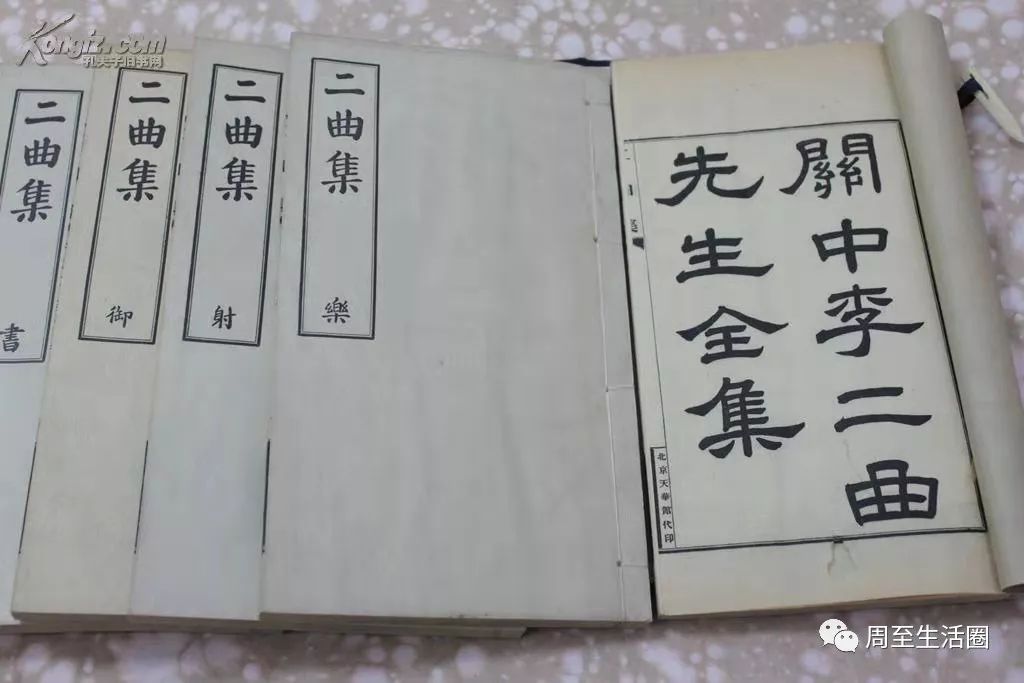 Kongfz.com
孔夫子旧书网
關中李二曲
先生全集
北京天華館代印
二曲集
樂
二曲集
射
二曲集
御
二曲集
書
周至生活圈